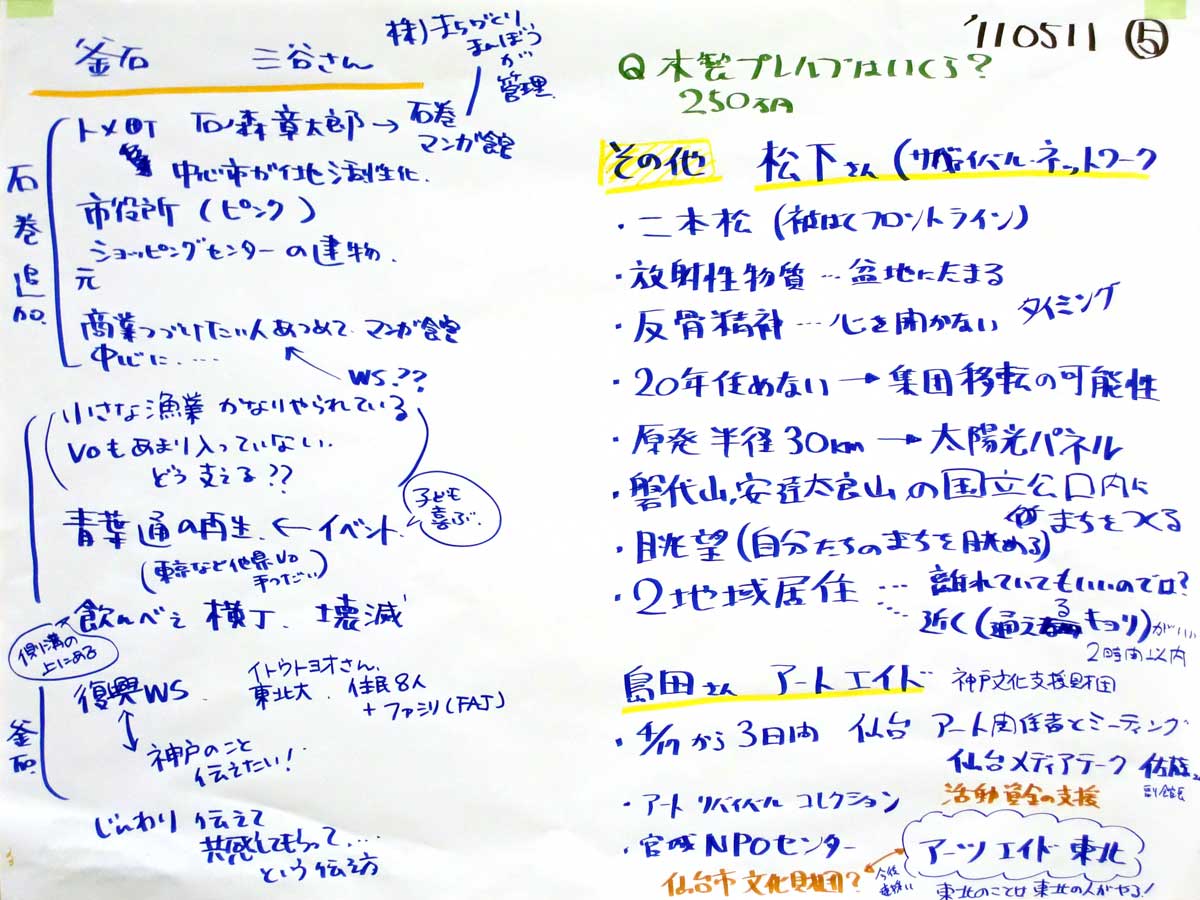 '110511 ⑤
釜石 三谷さん
株)まちづくり
まんぼう
が
管理
石巻追加.
トメ町 石ノ森章太郎→石巻
マンガ館
中心市が仕地活性化.
市役所(ピンク)
ショッピングセンターの建物.
元
商業つづけたい人あつめて マンガ館
中心に.....
WS.??
小さな漁業 かなりやられている
Voもあまり入っていない.
どう支える??
青葉通の再生.←イベント.
子ども
喜ぶ.
(東京など他県Vo
手つだい)
飲んべえ横丁.壊滅
側溝の
上にある
釜石.
復興WS.
イトウトヨオさん.
東北大. 住民8人
+ファシリ(FAJ)
神戸のこと
伝えたい!
じんわり伝えて
共感してもらって....
という伝え方
Q 木製プレハブはいくら?
250万円
その他 松下さん(サバイバル・ネットワーク
・二本松(被ばくフロントライン)
・放射性物質…盆地にたまる
・反骨精神…心を開かない タイミング
・20年住めない→集団移転の可能性
・原発半径30km→太陽光パネル
・磐代山,安達太良山の国立公園内に
まちをつくる
・眺望(自分たちのまちを眺める)
・2地域居住…離れていてもいいのでは?
…近く(通えるキョリ)がいい
2時間以内
島田さん アートエイド 神戸文化支援財団
・4/17から3日間 仙台 アート関係者とミーティング
仙台メディアテーク 佐藤さん
副館長
活動資金の支援
・アート リバイバル コレクション
・宮城NPOセンター
アーツエイド東北
仙台市文化財団?
今後
東北のことは東北の人がやる!